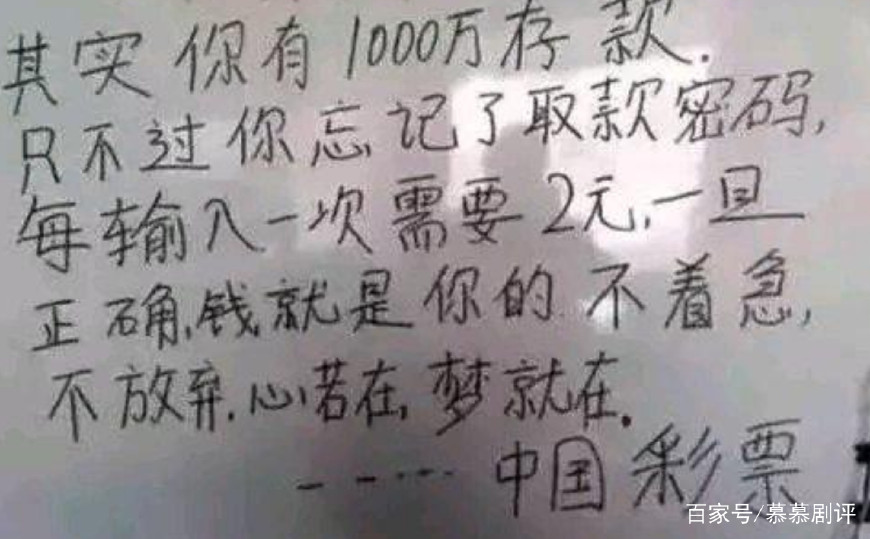 其实你有1000万存款.
只不过你忘记了取款密码,
每输入一次需要2元,一旦
正确,钱就是你的 不着急,
不放弃.心若在,梦就在.
-----中国彩票
百家号/慕慕剧评